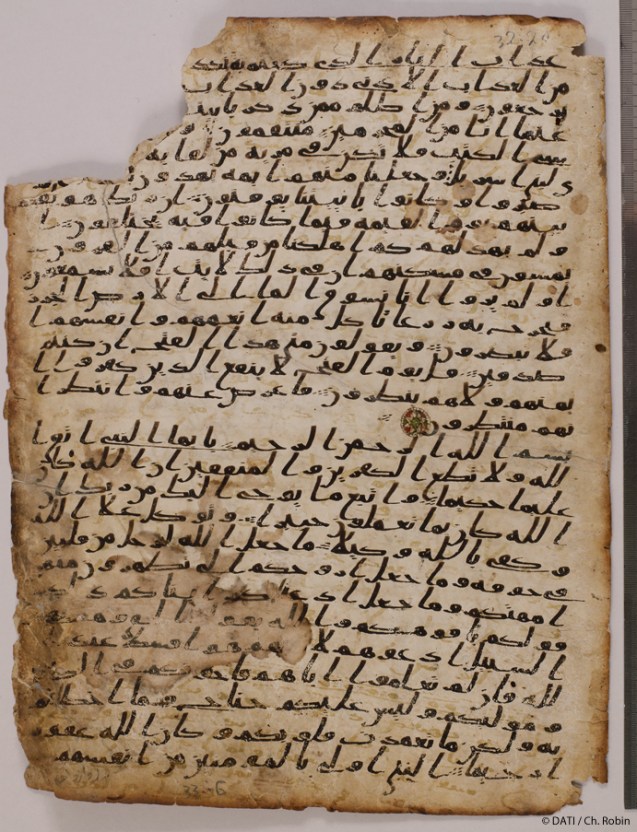 32-20
عذاب النار الذي كنتم به تكذ
من العذاب الادنى دون العذاب
يرجعون ومن اظلم ممن ذكر بايت
عنها انا من المجرمين منتقمون و
موسى الكتب فلا تكن في مرية من لقايه
لبني اسريل وجعلنا منهم ايمة يهدون
صبروا وكانوا بايتنا يوقنون ان ربك هو يفصل
بينهم يوم القيمة فيما كانوا فيه يختلفون ا
ولم يهد لهم كم اهلكنا من قبلهم من القرون
يمشون في مسكنهم ان في ذلك لايت افلا يسمعون
اولم يروا انا نسوق الما الى الارض الجرز
فنخرج به زرعا تاكل منه انعمهم وانفسهم ا
فلا يبصرون ويقولون متى هذا الفتح ان كنتم
صدقين قل يوم الفتح لا ينفع الذين كفروا ا
يمنهم ولا هم ينظرون فاعرض عنهم وانتظر ا
نهم منتظرون
بسم الله الرحمن الرحيم يايها النبي اتق ا
لله ولا تطع الكفرين والمنفقين ان الله كان
عليما حكيما واتبع ما يوحى اليك من ربك ان
الله كان بما تعملون خبيرا وتوكل علا الله
وكفى بالله وكيلا ما جعل الله لرجل من قلبين
في جوفه وما جعل ازوجكم الى تظهرون منهن
امهتكم وما جعل ادعياكم ابناكم ذلكم
قولكم بافوهكم والله يقول الحق وهو يهدي
السبيل ادعوهم لابايهم هو اقسط عند ا
لله فان لم تعلموا اباهم فاخونكم في الدين
وموليكم وليس عليكم جناح فيما اخطاتم
به ولكن ما تعمدت قلوبكم وكان الله غفورا
رحيما النبي اولى بالمومنين من انفسهم
33-6
© DATI / Ch. Robin